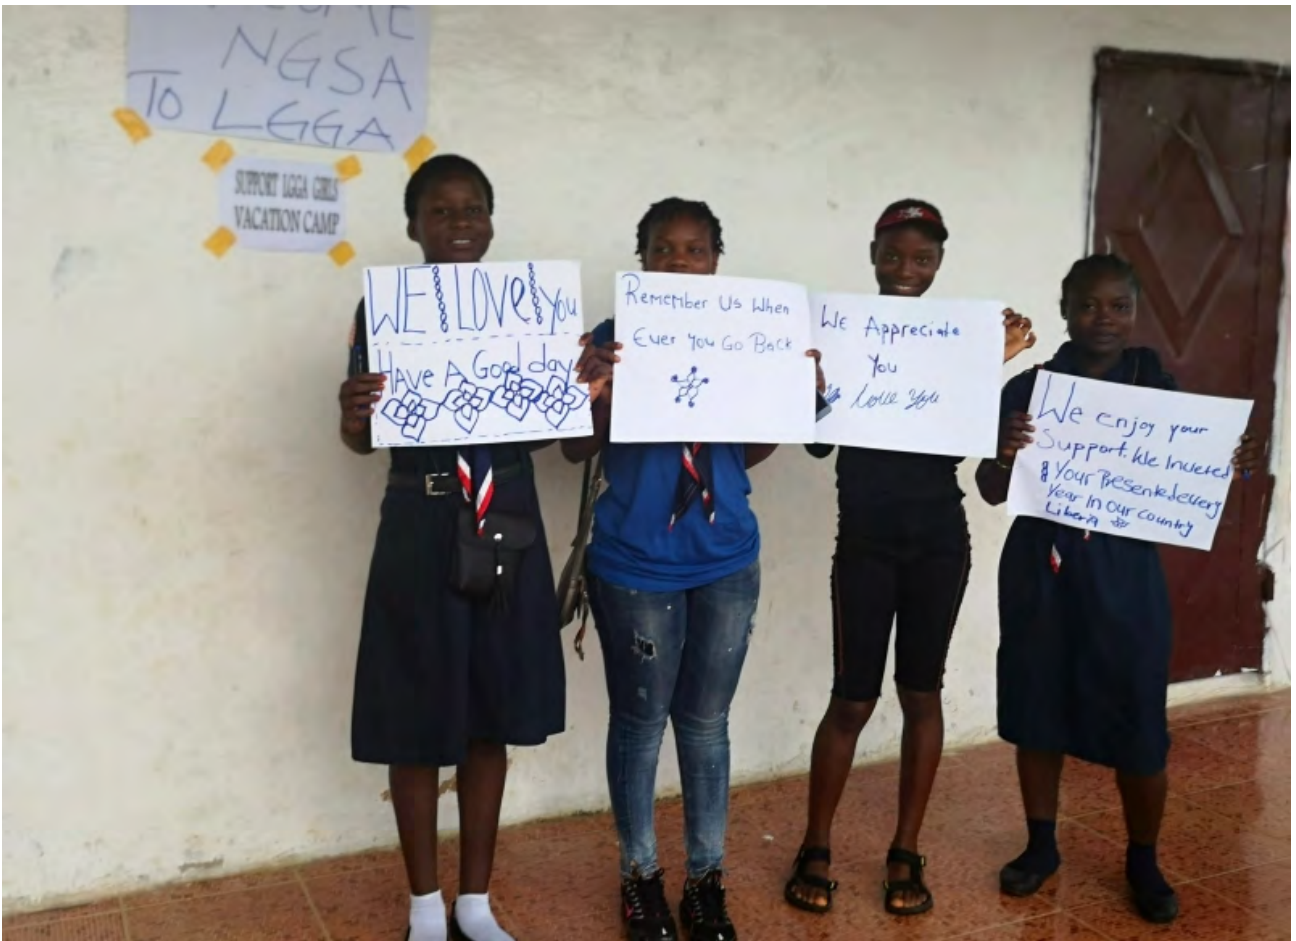 NGSA
TO LGGA
SUPPORT LGGA GIRLS
VACATION CAMP
WE LOVE you
HAVE A Good day
Remember Us When
Ever You Go Back
We Appreciate
You
Love You
We enjoy your
Support. We Invered
Your Presentedevery
Year In our country
Liberia